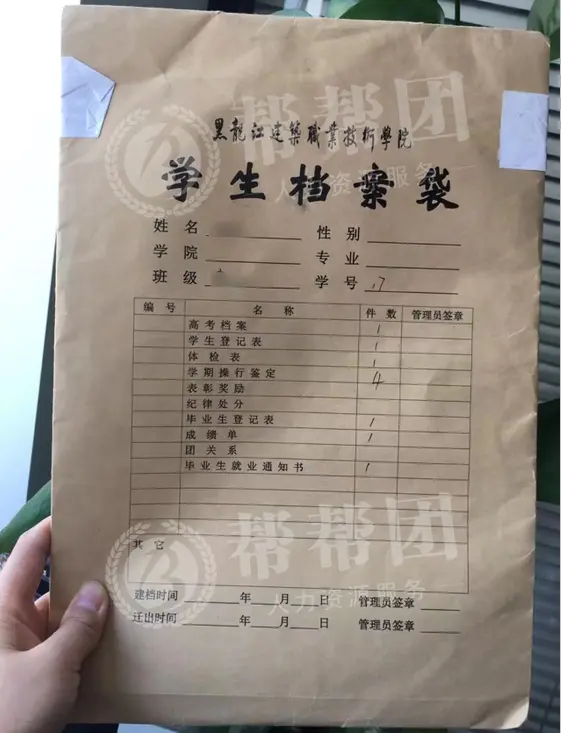 黑龍江建築職業技術學院
学生档案袋
姓名 性别
学院 专业
班级 学号 17
编号 名称 件数 管理员签章
高考档案 1
学生登记表 1
体检表 1
学期操行鉴定 4
表彰奖励
纪律处分
毕业生登记表 1
成绩单 1
团关系
毕业生就业通知书 1
其它
建档时间 年 月 日 管理员签章
迁出时间 年 月 日 管理员签章
帮帮团
人力资源服务
帮帮团
人力资源服务